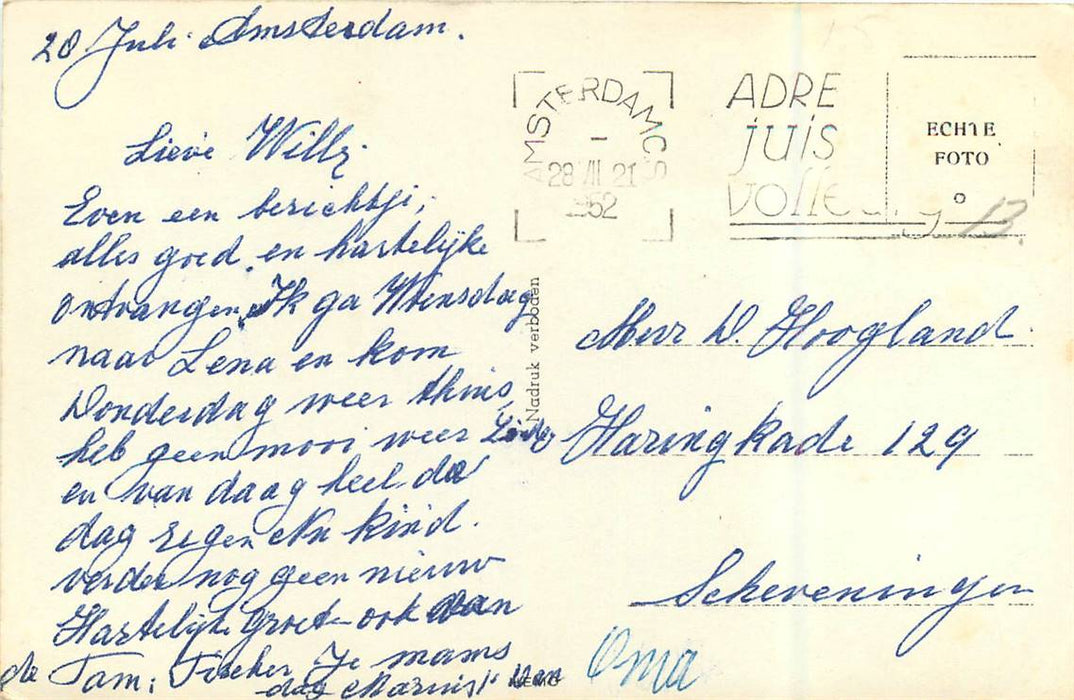 28 Juli Amsterdam.
Lieve Willy.
Even een berichtji,
alles goed en hartelijke
ontvangen. Ik ga Woensdag
naar Lena en kom
Donderdag weer thuis
heb geen mooi weer
en van daag heel de
dag regen Nu kind.
verder nog geen nieuw
Hartelijk groet ook van
de Fam: Fischer Je mams
dag Marinus! van
Oma
AMSTERDAM C.S
28 VII 21
1952
ADRE
juis
volle
ECHTE
FOTO
13.
Nadruk verboden
Meur W. Hoogland
Haringkade 129
Scheveningen